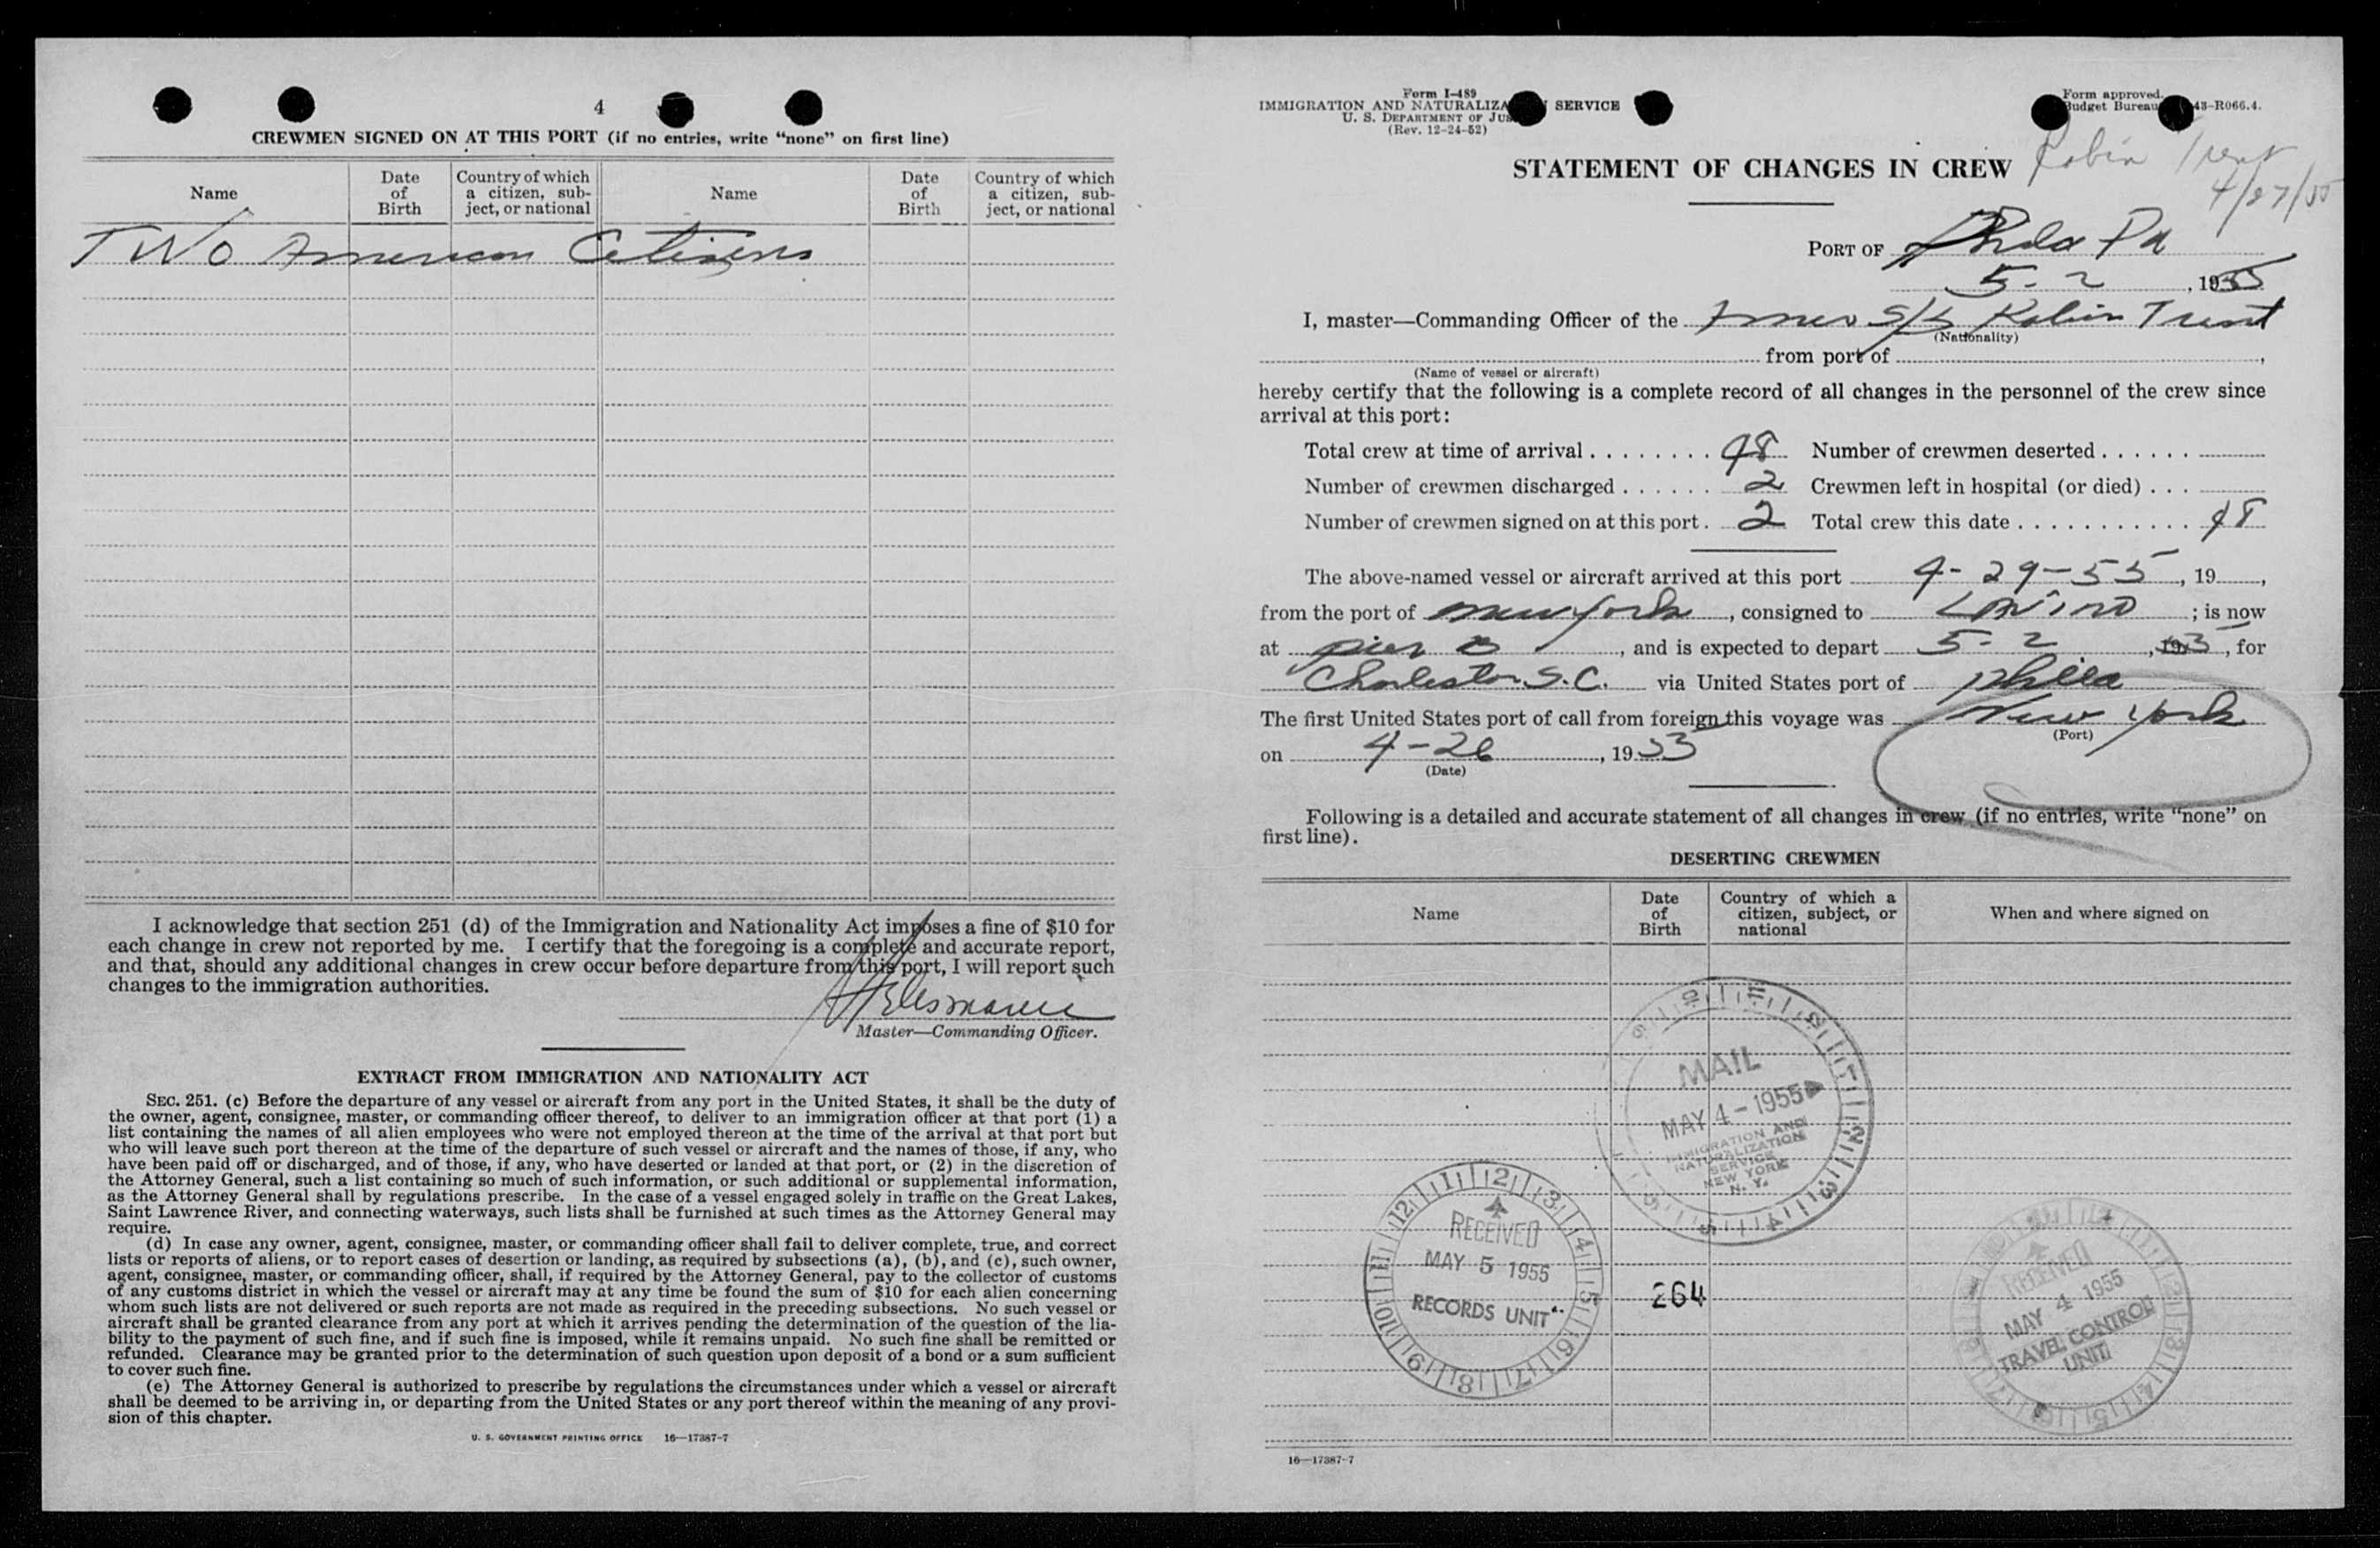 4
CREWMEN SIGNED ON AT THIS PORT (if no entries, write “none” on first line)
Name
Date of Birth
Country of which a citizen, subject, or national
Name
Date of Birth
Country of which a citizen, subject, or national
TWO American Citizens
I acknowledge that section 251 (d) of the Immigration and Nationality Act imposes a fine of $10 for
each change in crew not reported by me. I certify that the foregoing is a complete and accurate report,
and that, should any additional changes in crew occur before departure from this port, I will report such
changes to the immigration authorities.
Master—Commanding Officer.
EXTRACT FROM IMMIGRATION AND NATIONALITY ACT
SEC. 251. (c) Before the departure of any vessel or aircraft from any port in the United States, it shall be the duty of
the owner, agent, consignee, master, or commanding officer thereof, to deliver to an immigration officer at that port (1) a
list containing the names of all alien employees who were not employed thereon at the time of the arrival at that port but
who will leave such port thereon at the time of the departure of such vessel or aircraft and the names of those, if any, who
have been paid off or discharged, and of those, if any, who have deserted or landed at that port, or (2) in the discretion of
the Attorney General, such a list containing so much of such information, or such additional or supplemental information,
as the Attorney General shall by regulations prescribe. In the case of a vessel engaged solely in traffic on the Great Lakes,
Saint Lawrence River, and connecting waterways, such lists shall be furnished at such times as the Attorney General may
require.
(d) In case any owner, agent, consignee, master, or commanding officer shall fail to deliver complete, true, and correct
lists or reports of aliens, or to report cases of desertion or landing, as required by subsections (a), (b), and (c), such owner,
agent, consignee, master, or commanding officer, shall, if required by the Attorney General, pay to the collector of customs
of any customs district in which the vessel or aircraft may at any time be found the sum of $10 for each alien concerning
whom such lists are not delivered or such reports are not made as required in the preceding subsections. No such vessel or
aircraft shall be granted clearance from any port at which it arrives pending the determination of the question of the lia-
bility to the payment of such fine, and if such fine is imposed, while it remains unpaid. No such fine shall be remitted or
refunded. Clearance may be granted prior to the determination of such question upon deposit of a bond or a sum sufficient
to cover such fine.
(e) The Attorney General is authorized to prescribe by regulations the circumstances under which a vessel or aircraft
shall be deemed to be arriving in, or departing from the United States or any port thereof within the meaning of any provi-
sion of this chapter.
U. S. GOVERNMENT PRINTING OFFICE 16—17387-7
Form I-489
IMMIGRATION AND NATURALIZA SERVICE
U. S. DEPARTMENT OF JUS
(Rev. 12-24-52)
Form approved.
Budget Bureau 43-R066.4.
STATEMENT OF CHANGES IN CREW
Robin Trent
4/27/55
PORT OF Phila Pa
5-2, 1955
I, master—Commanding Officer of the Amer S/S Robin Trent
(Nationality)
from port of ,
(Name of vessel or aircraft)
hereby certify that the following is a complete record of all changes in the personnel of the crew since
arrival at this port:
Total crew at time of arrival . . . . . . . . 48 Number of crewmen deserted . . . . . .
Number of crewmen discharged . . . . . . 2 Crewmen left in hospital (or died) . . .
Number of crewmen signed on at this port . 2 Total crew this date . . . . . . . . . . . . 48
The above-named vessel or aircraft arrived at this port 4-29-55, 19 ,
from the port of new york, consigned to LAVINO; is now
at pier B, and is expected to depart 5-2, 1955, for
Charleston S.C. via United States port of phila
The first United States port of call from foreign this voyage was New York
(Port)
on 4-26, 1955
(Date)
Following is a detailed and accurate statement of all changes in crew (if no entries, write “none” on
first line).
DESERTING CREWMEN
Name
Date of Birth
Country of which a citizen, subject, or national
When and where signed on
MAIL
MAY 4 - 1955
IMMIGRATION AND
NATURALIZATION
SERVICE
NEW YORK
N. Y.
RECEIVED
MAY 5 1955
RECORDS UNIT
264
RECEIVED
MAY 4 1955
TRAVEL CONTROL
UNIT
16—17387-7